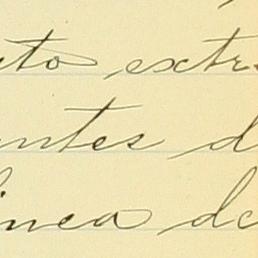 to extr
ntes d
inea de